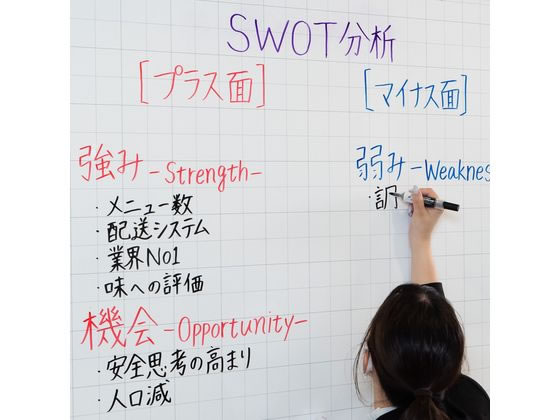 SWOT分析
[プラス面]
[マイナス面]
強み -Strength-
・メニュー数
・配送システム
・業界No1
・味への評価
弱み -Weaknes
機会 -Opportunity-
・安全思考の高まり
・人口減